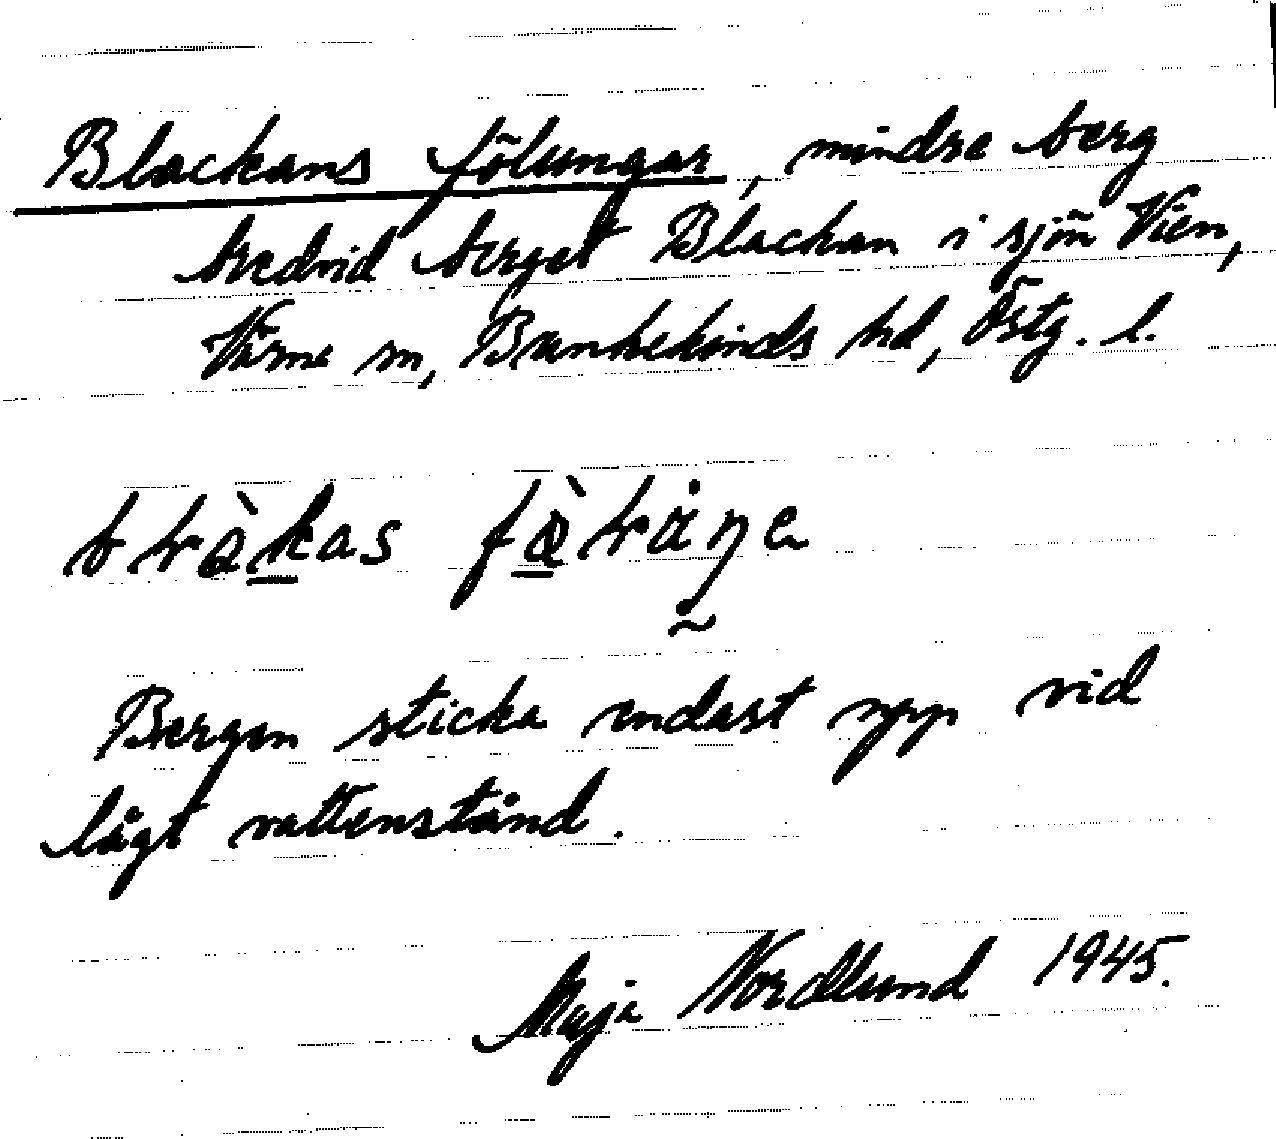 Blackans fölungar, mindre berg
bredvid berget Blackan i sjön Vien,
Värna sn, Bankekinds hd, Östg. l.
Bergen sticka endast upp vid
lågt vattenstånd.
Maja Nordlund 1945.